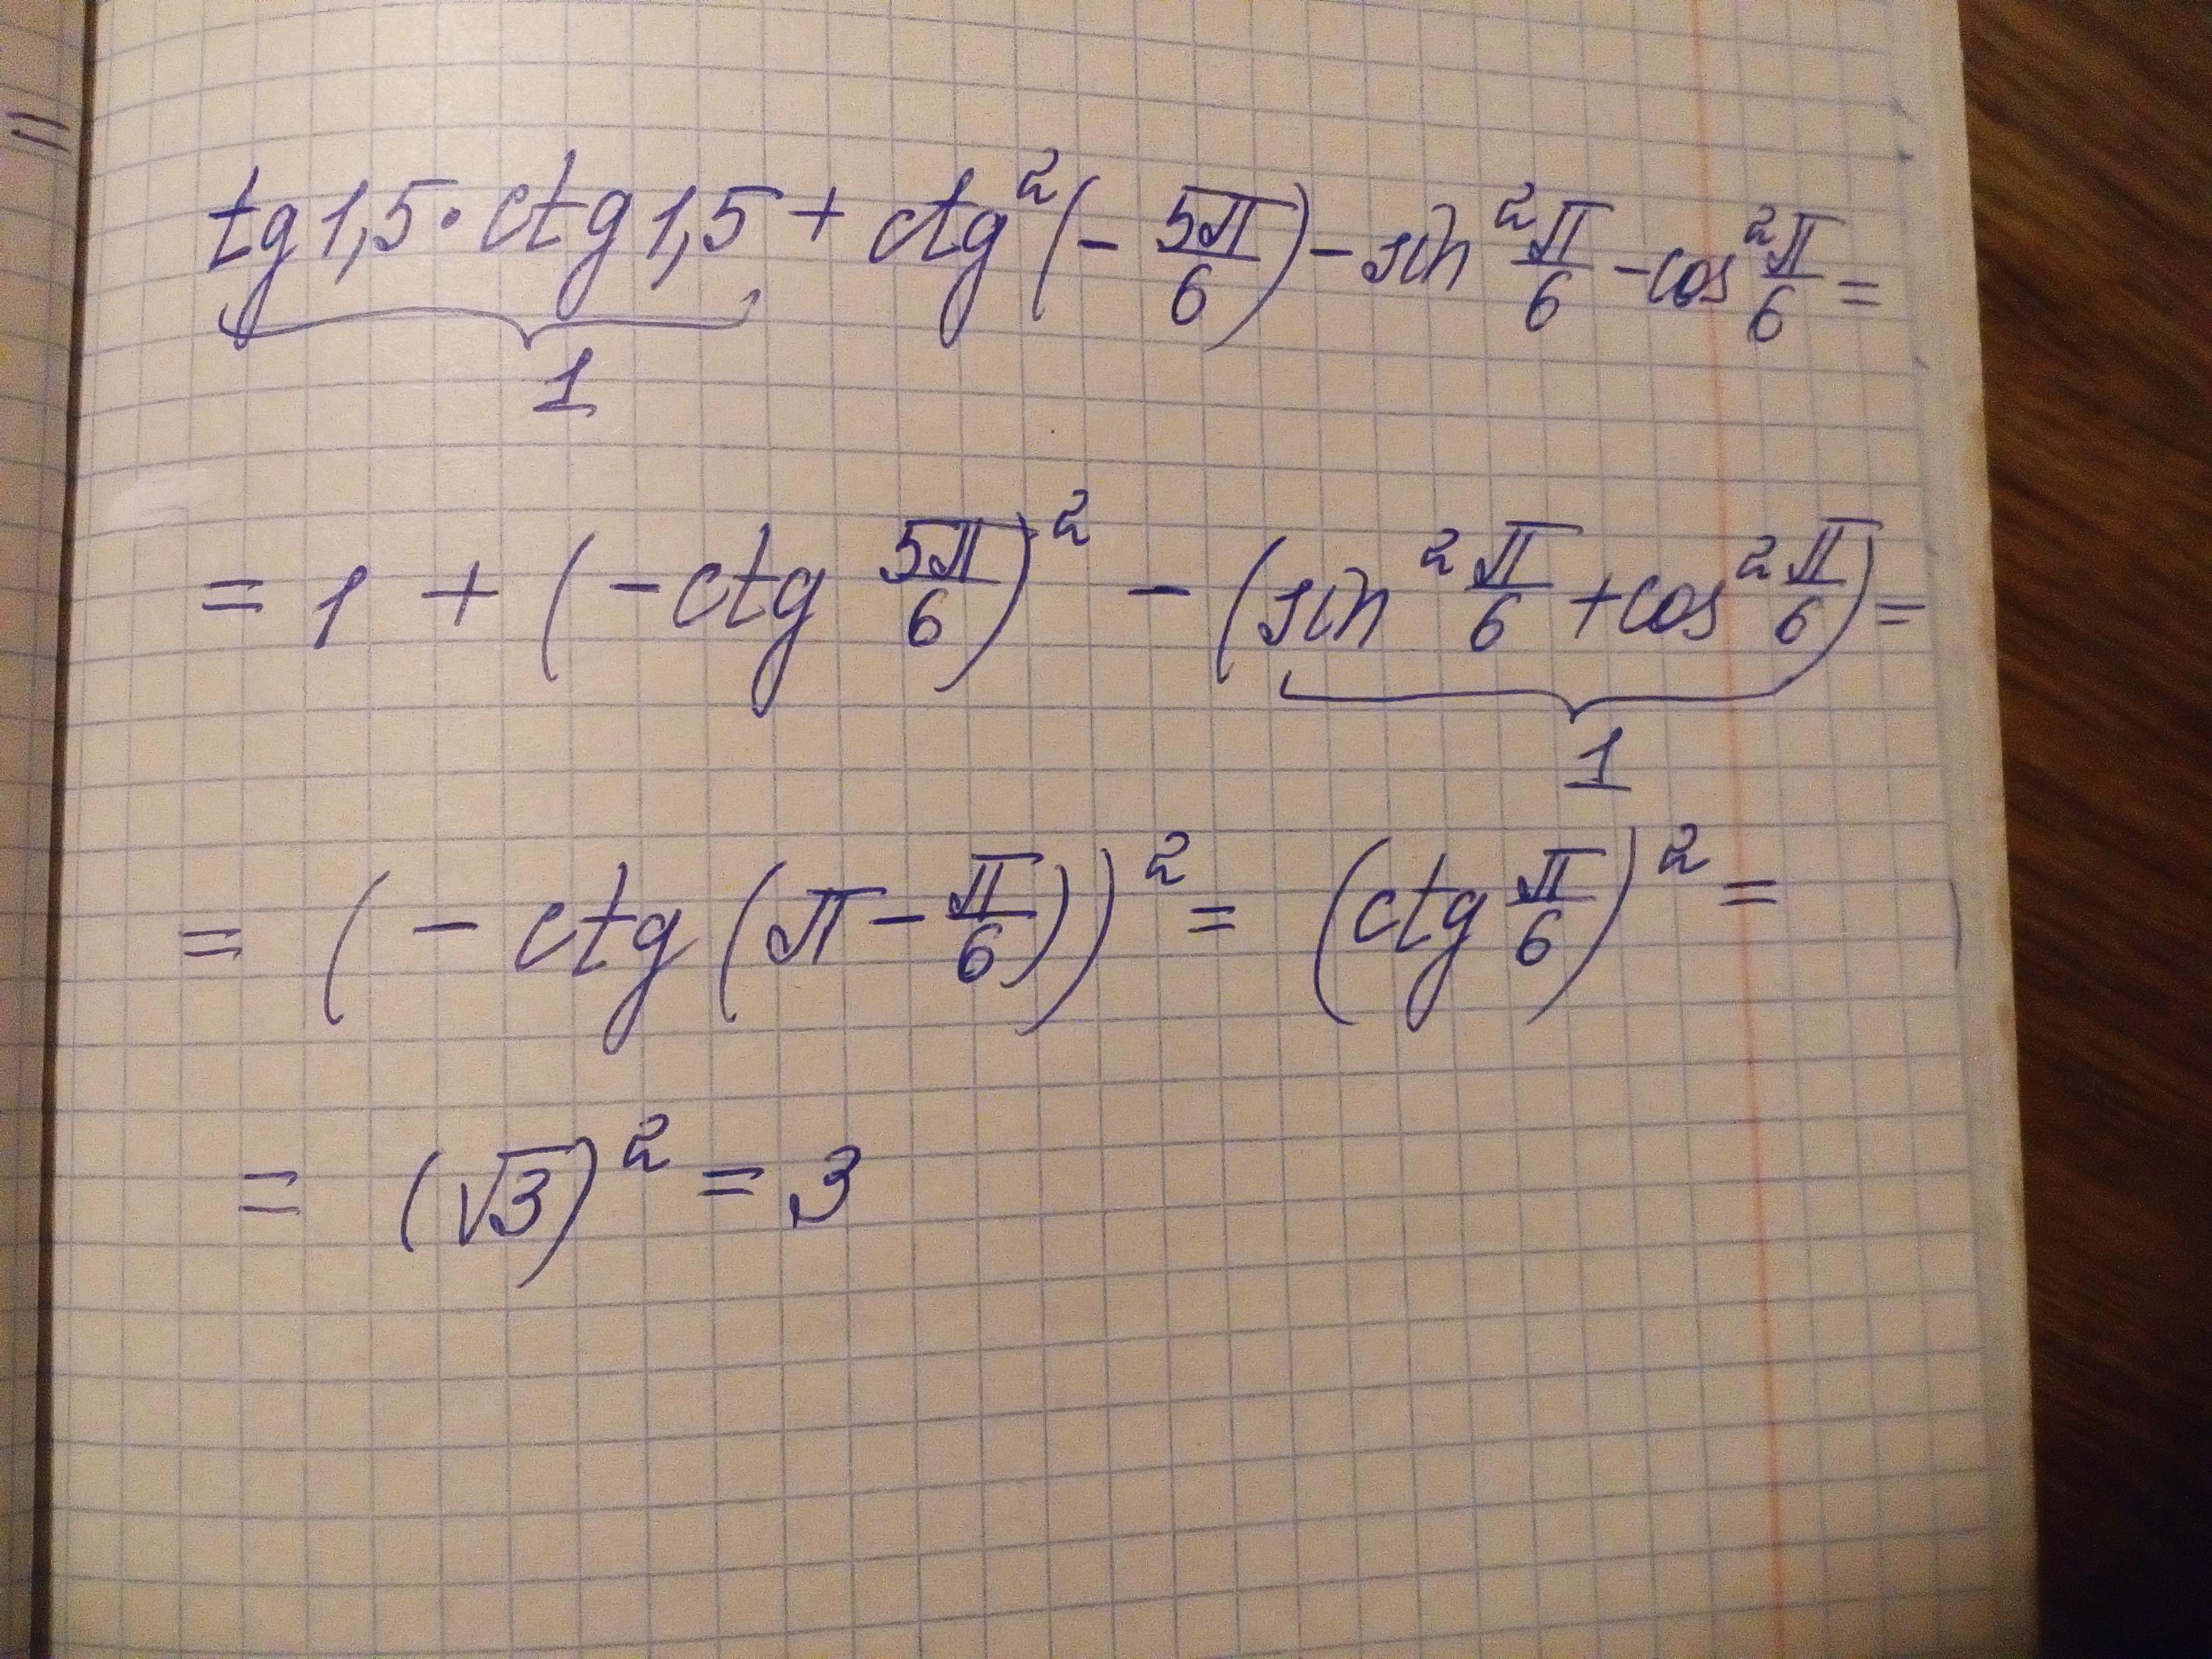 =
tg 1,5 · ctg 1,5 + ctg²(− 5π/6) − sin² π/6 − cos² π/6 =
1
= 1 + (−ctg 5π/6)² − (sin² π/6 + cos² π/6) =
1
= (− ctg (π − π/6))² = (ctg π/6)² =
= (√3)² = 3